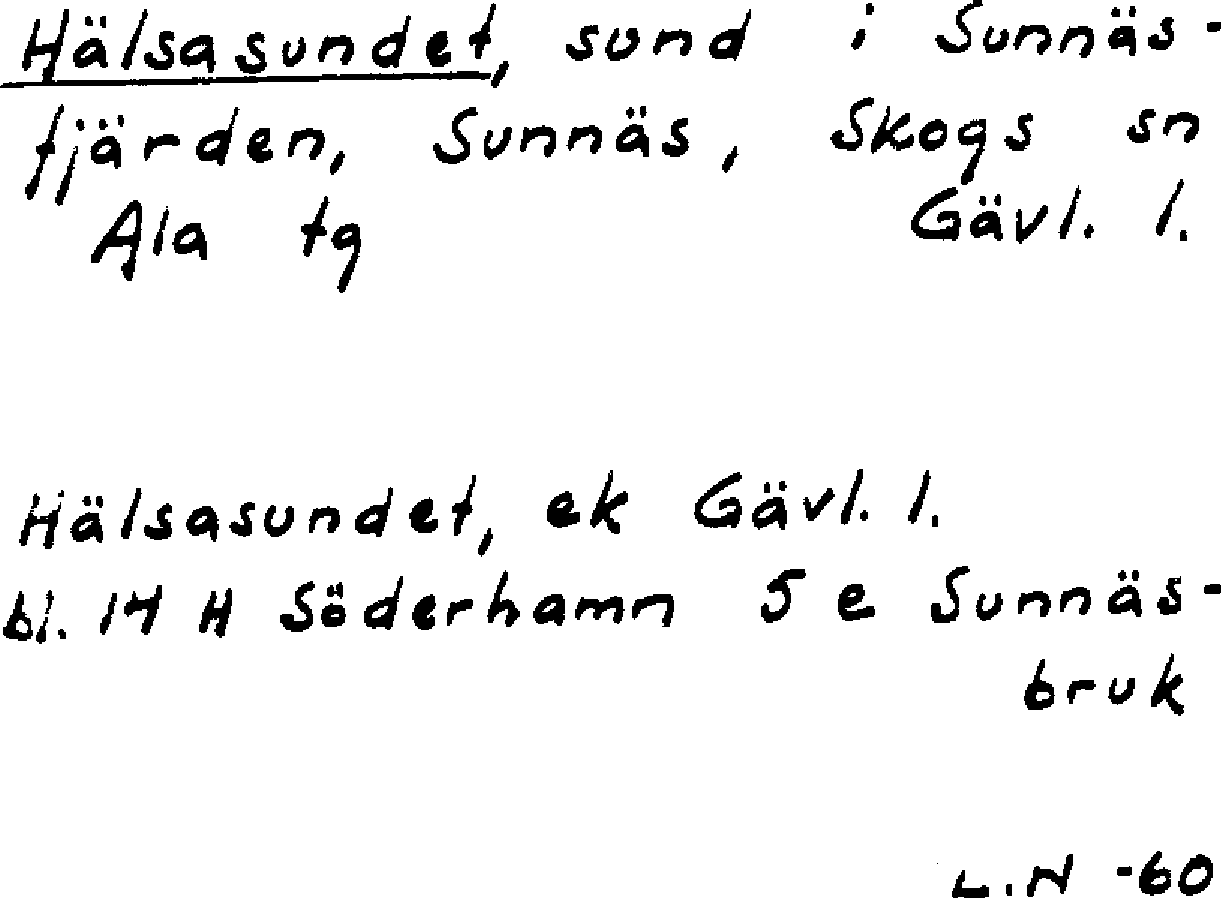 Hälsasundet, sund i Sunnäs-
fjärden, Sunnäs, Skogs sn
Ala tg Gävl. l.
Hälsasundet, ek Gävl. l.
bl. 14 H Söderhamn 5 e Sunnäs-
bruk
L.N -60